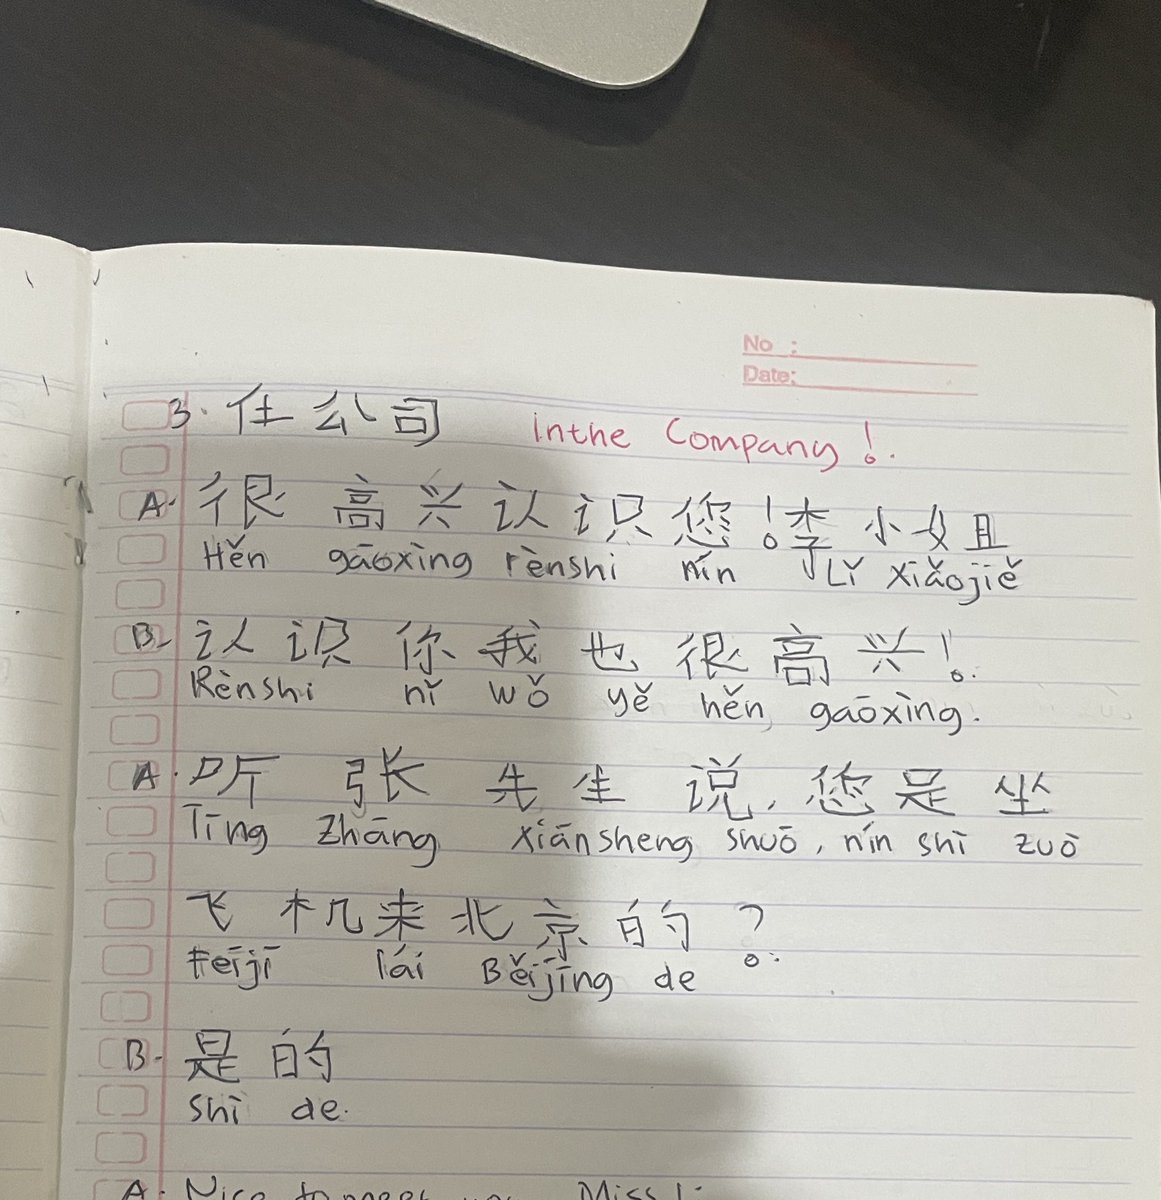 No :
Date:
3. 在公司 in the Company!
A. 很高兴认识您!李小姐
Hěn gāoxìng rènshi nín Lǐ xiǎojiě
B. 认识你我也很高兴!
Rènshi nǐ wǒ yě hěn gāoxìng.
A. 听张先生说,您是坐
Tīng Zhāng xiānsheng shuō, nín shì zuō
飞机来北京的?
Fēijī lái Běijīng de
B. 是的
shì de.
A. Nice to meet you Miss Li